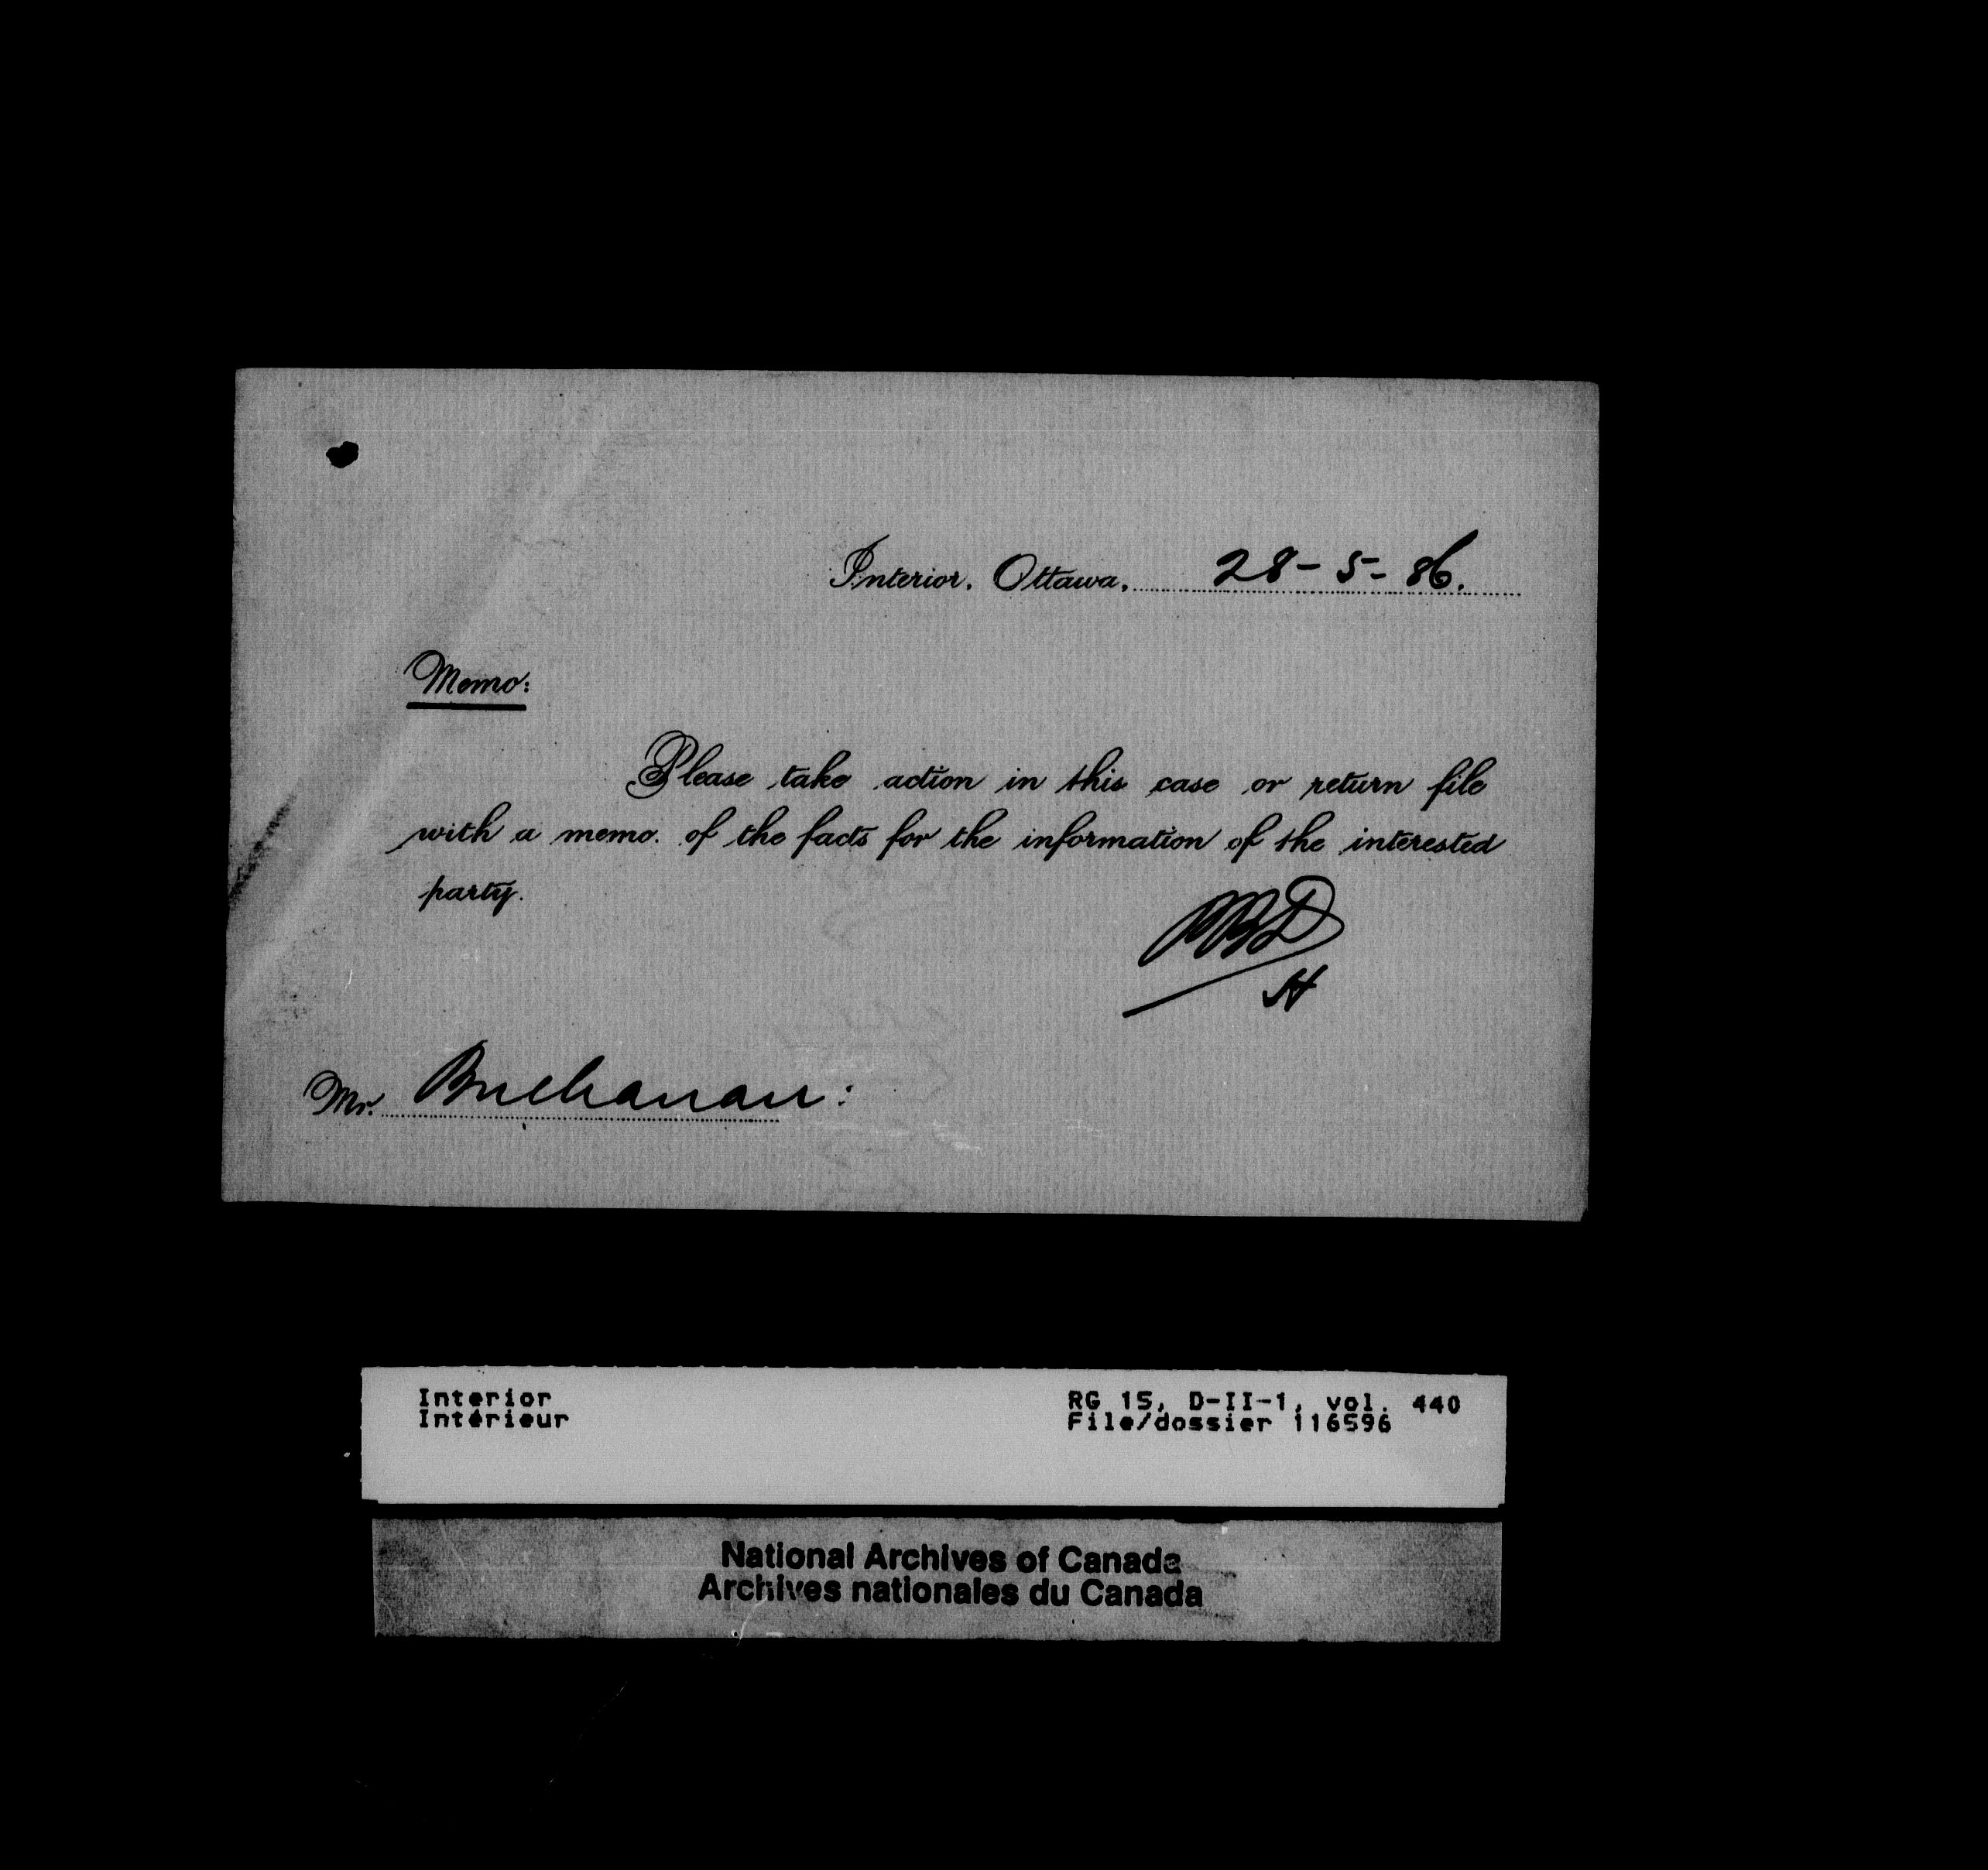 Interior, Ottawa, 28-5-86.
Memo:
Please take action in this case or return file
with a memo. of the facts for the information of the interested
party.
H
Mr. Buchanan:
Interior
Intérieur
RG 15, D-II-1, vol. 440
File/dossier 116596
National Archives of Canada
Archives nationales du Canada